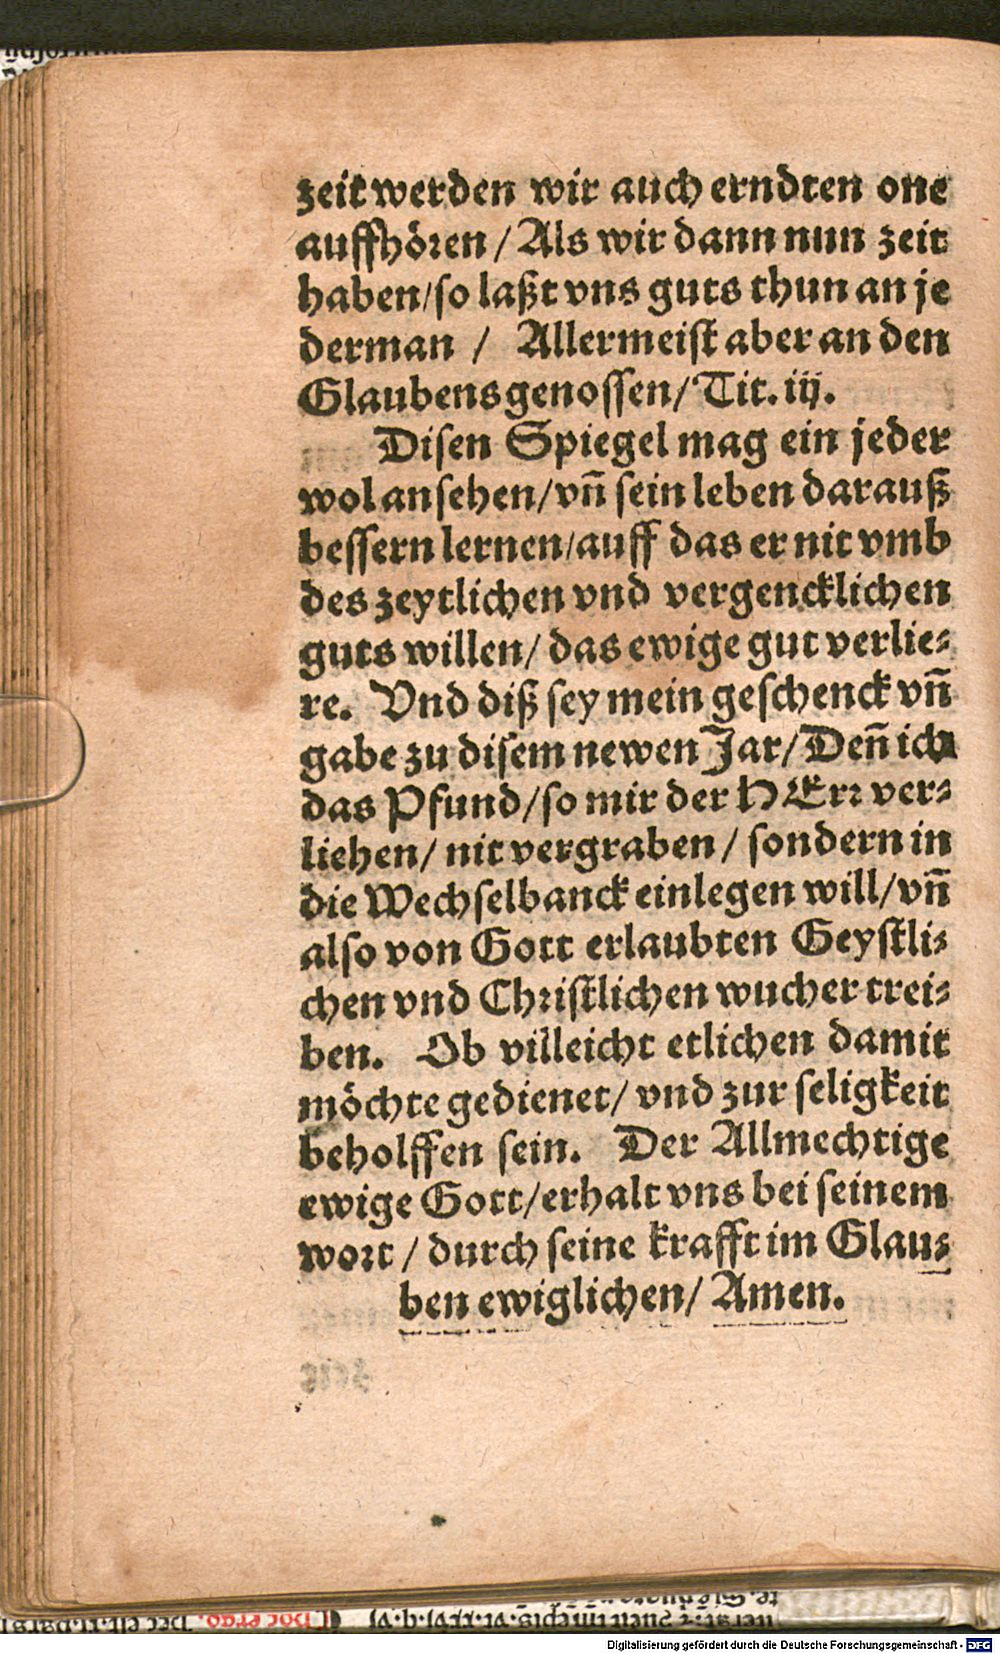 zeit werden wir auch erndten one
auffhören / Als wir dann nun zeit
haben / so laßt vns guts thun an je
derman / Allermeist aber an den
Glaubensgenossen / Tit. iij.
Disen Spiegel mag ein jeder
wol ansehen / vn̄ sein leben darauß
bessern lernen / auff das er nit vmb
des zeytlichen vnd vergencklichen
guts willen / das ewige gut verlie⸗
re. Vnd diß sey mein geschenck vn̄
gabe zu disem newen Jar / Den̄ ich
das Pfund / so mir der HErr ver⸗
liehen / nit vergraben / sondern in
die Wechselbanck einlegen will / vn̄
also von Gott erlaubten Geystli⸗
chen vnd Christlichen wucher trei⸗
ben. Ob villeicht etlichen damit
möchte gedienet / vnd zur seligkeit
beholffen sein. Der Allmechtige
ewige Gott / erhalt vns bei seinem
wort / durch seine krafft im Glau⸗
ben ewiglichen / Amen.
Digitalisierung gefördert durch die Deutsche Forschungsgemeinschaft - DFG